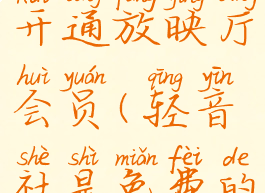 开通放映厅
huì yuán qīng yīn
会员(轻音
shè shì miǎn fèi de
社是免费的